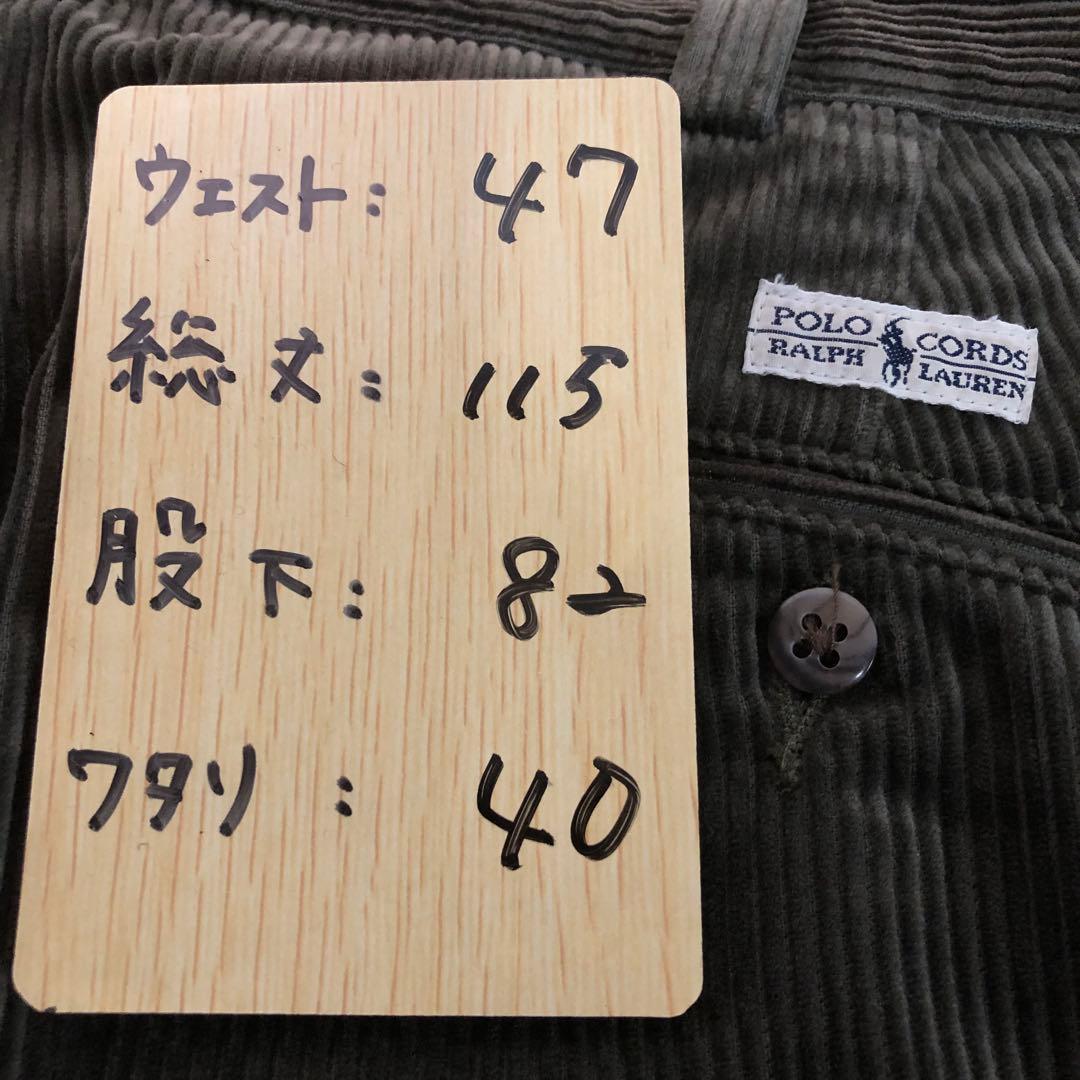 ウエスト: 47
総丈: 115
股下: 82
ワタリ: 40
POLO CORDS
RALPH LAUREN